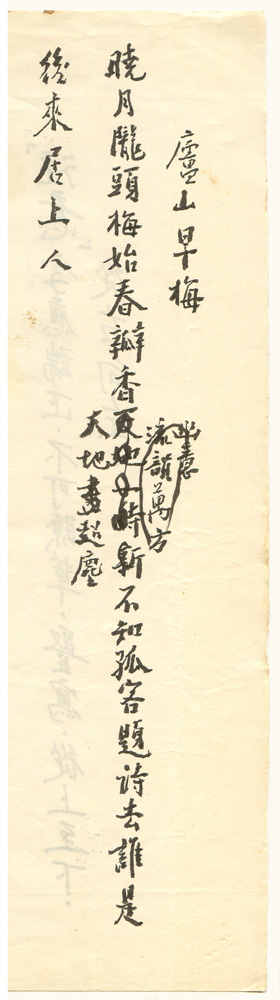 廬山早梅
幽意
流韻萬方
曉月隴頭梅始春瓣香更曳小時新不知孤客題詩去誰是
天地畫超塵
後來居上人